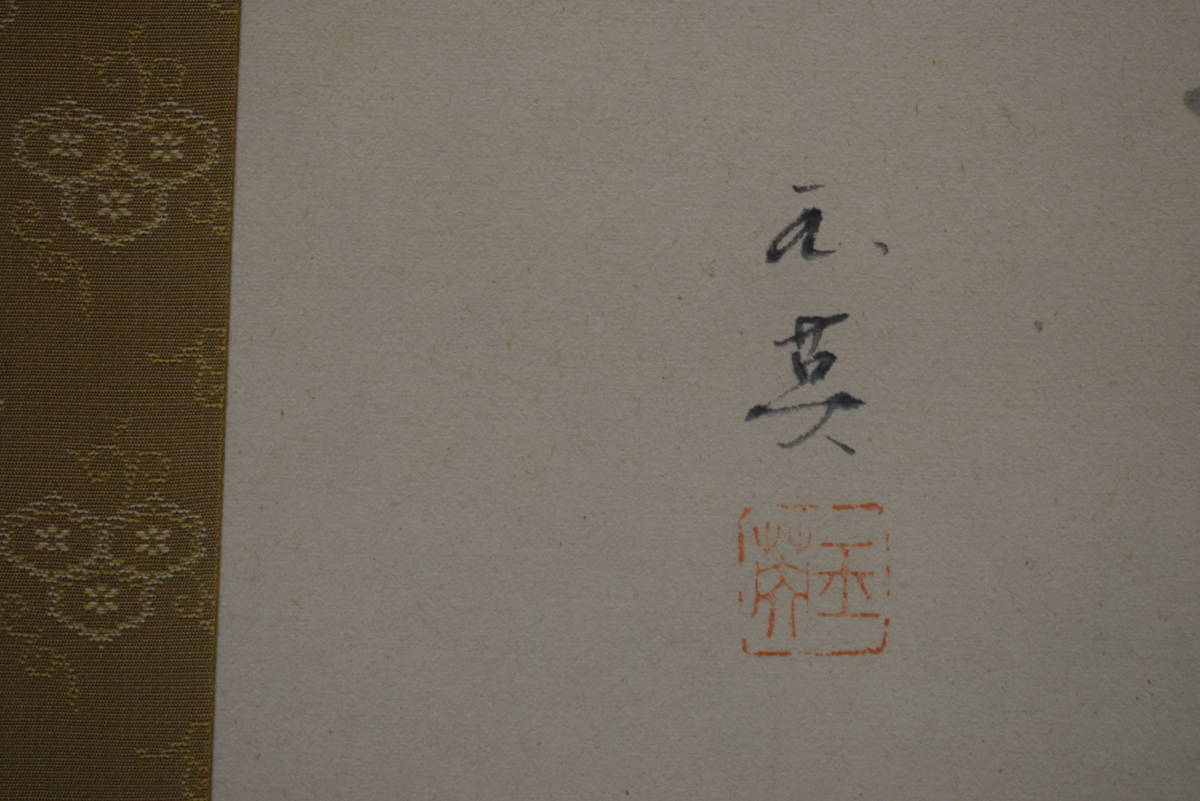 玉英
玉英